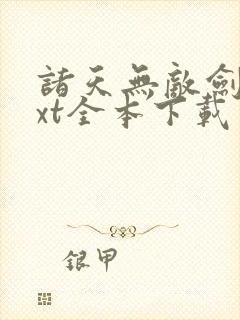 諸天無敵劍
xt全本下載
銀甲